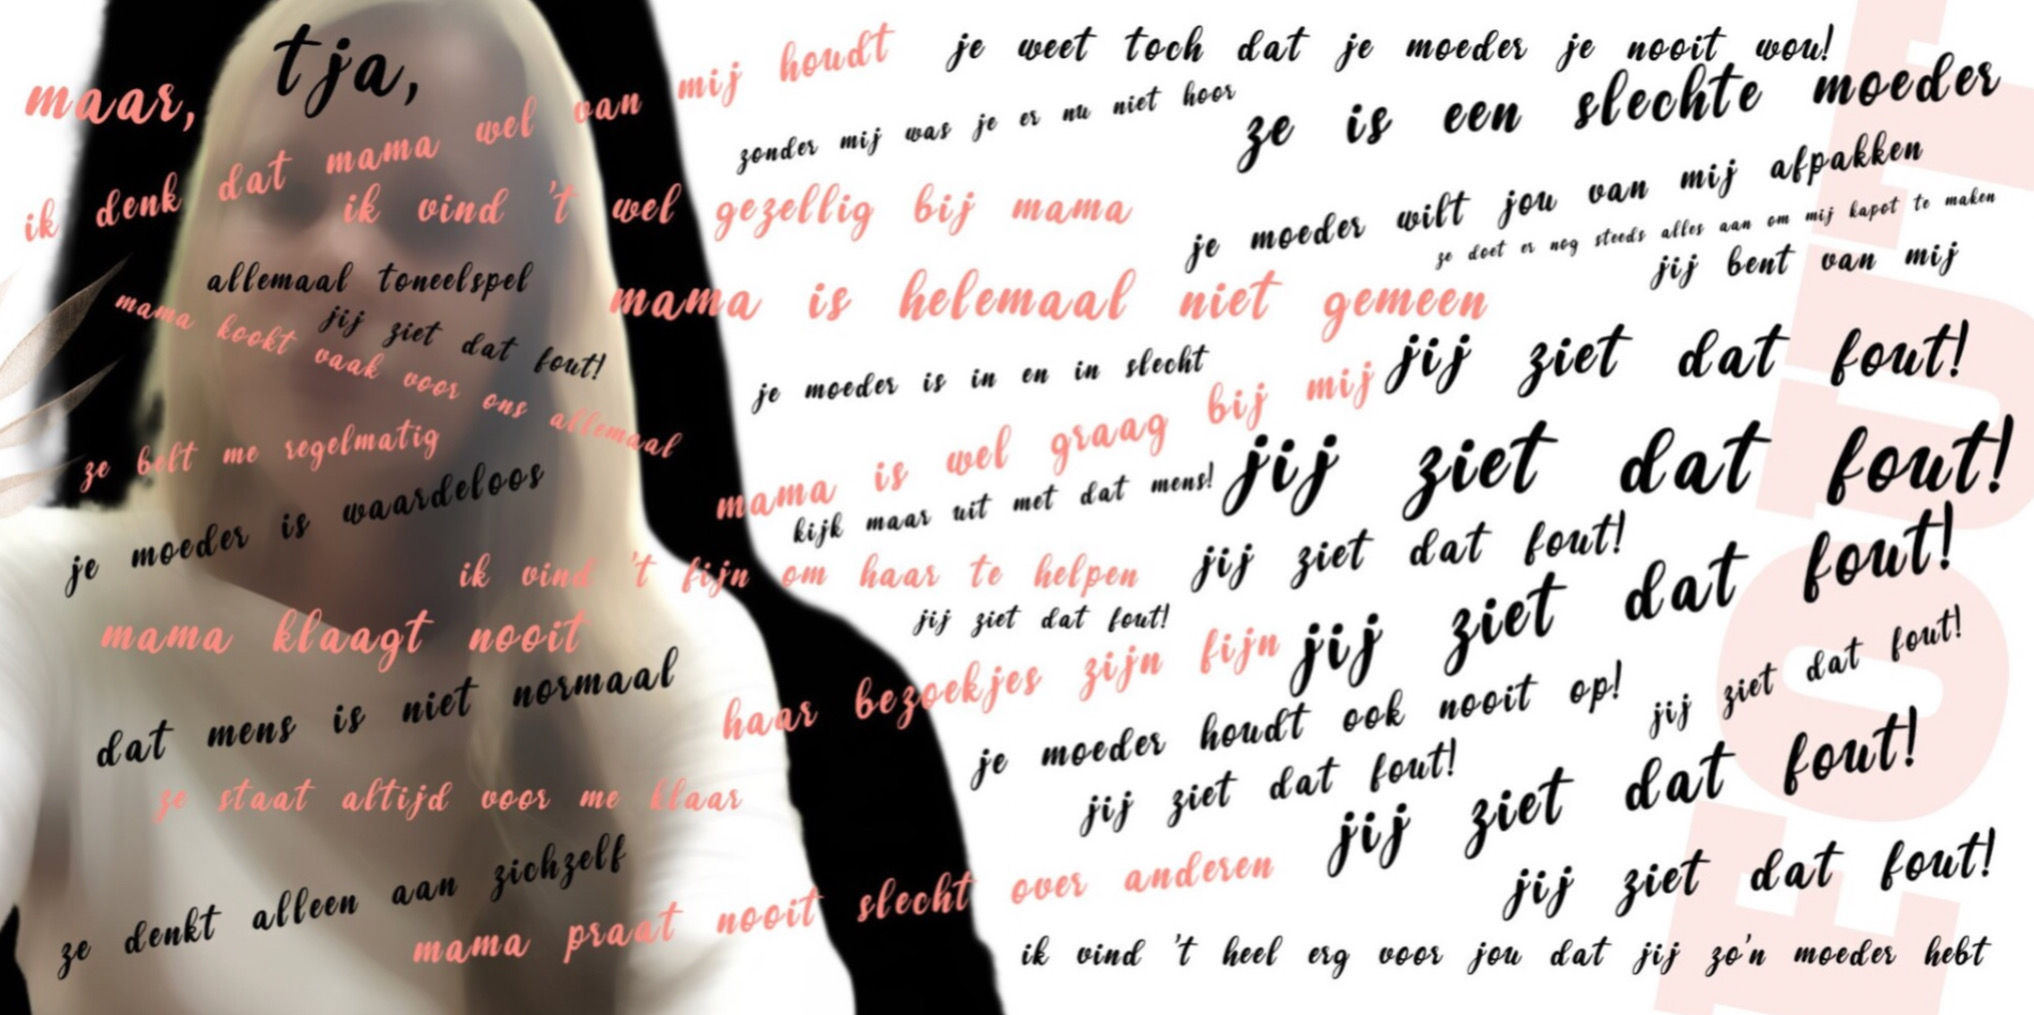 tja,
maar,
ik denk dat mama wel van mij houdt
je weet toch dat je moeder je nooit wou!
zonder mij was je er nu niet hoor
ze is een slechte moeder
ik vind 't wel gezellig bij mama
je moeder wilt jou van mij afpakken
ze doet er nog steeds alles aan om mij kapot te maken
jij bent van mij
allemaal toneelspel
mama is helemaal niet gemeen
jij ziet dat fout!
mama kookt vaak voor ons allemaal
je moeder is in en in slecht
jij ziet dat fout!
mama is wel graag bij mij
jij ziet dat fout!
ze belt me regelmatig
kijk maar uit met dat mens!
je moeder is waardeloos
ik vind 't fijn om haar te helpen
jij ziet dat fout!
jij ziet dat fout!
jij ziet dat fout!
mama klaagt nooit
haar bezoekjes zijn fijn
jij ziet dat fout!
dat mens is niet normaal
je moeder houdt ook nooit op!
jij ziet dat fout!
jij ziet dat fout!
ze staat altijd voor me klaar
jij ziet dat fout!
ze denkt alleen aan zichzelf
mama praat nooit slecht over anderen
ik vind 't heel erg voor jou dat jij zo'n moeder hebt
FOUT